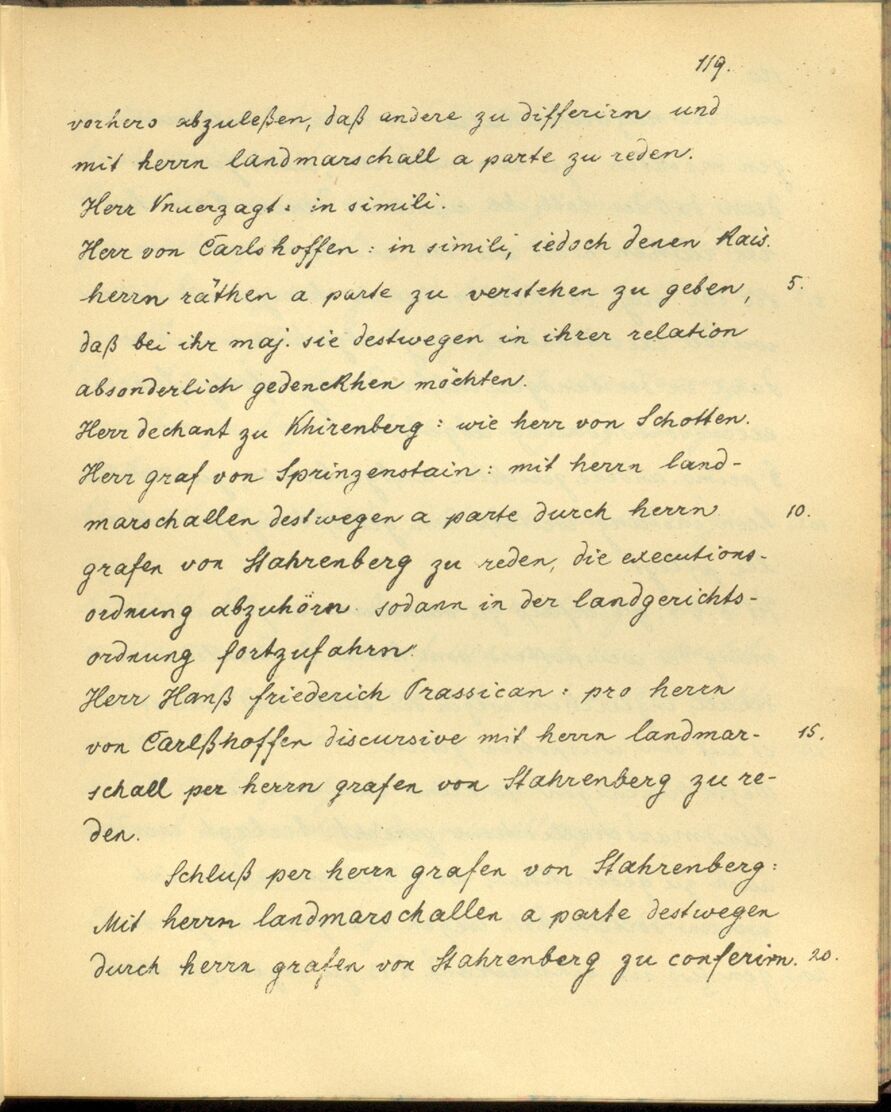 119.
vorhero abzuleßen, daß andere zu differirn und
mit herrn landmarschall a parte zu reden.
Herr Vnuerzagt: in simili.
Herr von Carlshoffen: in simili, iedoch denen Kais.
herrn räthen a parte zu verstehen zu geben, 5.
daß bei ihr maj. sie destwegen in ihrer relation
absonderlich gedenckhen möchten.
Herr dechant zu Khirenberg: wie herr von Schotten.
Herr graf von Sprinzenstain: mit herrn land-
marschallen destwegen a parte durch herrn 10.
grafen von Stahrenberg zu reden, die executions-
ordnung abzuhörn sodann in der landgerichts-
ordnung fortzufahrn.
Herr Hanß friederich Trassican: pro herrn
von Carlßhoffen discursive mit herrn landmar- 15.
schall per herrn grafen von Stahrenberg zu re-
den.
Schluß per herrn grafen von Stahrenberg:
Mit herrn landmarschallen a parte destwegen
durch herrn grafen von Stahrenberg zu conferirn. 20.